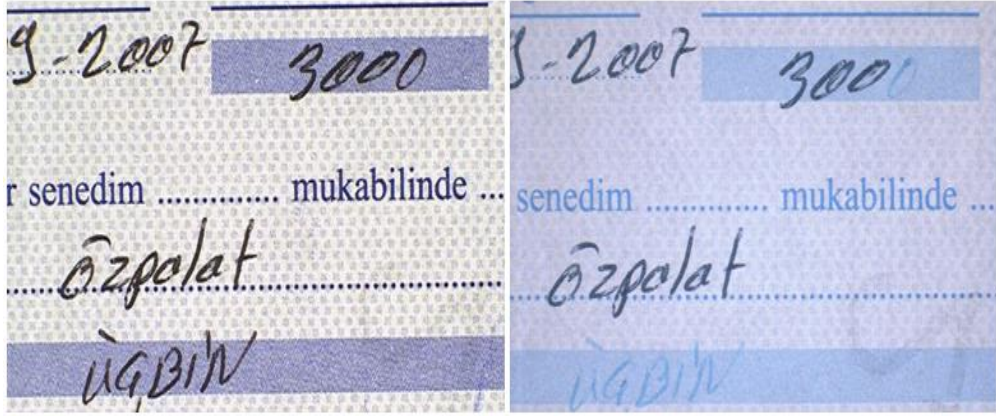 9-2007 3000
r senedim ............. mukabilinde ...
özpolat
ÜÇBİN
9-2007 3000
senedim ............. mukabilinde ...
özpolat
ÜÇBİN